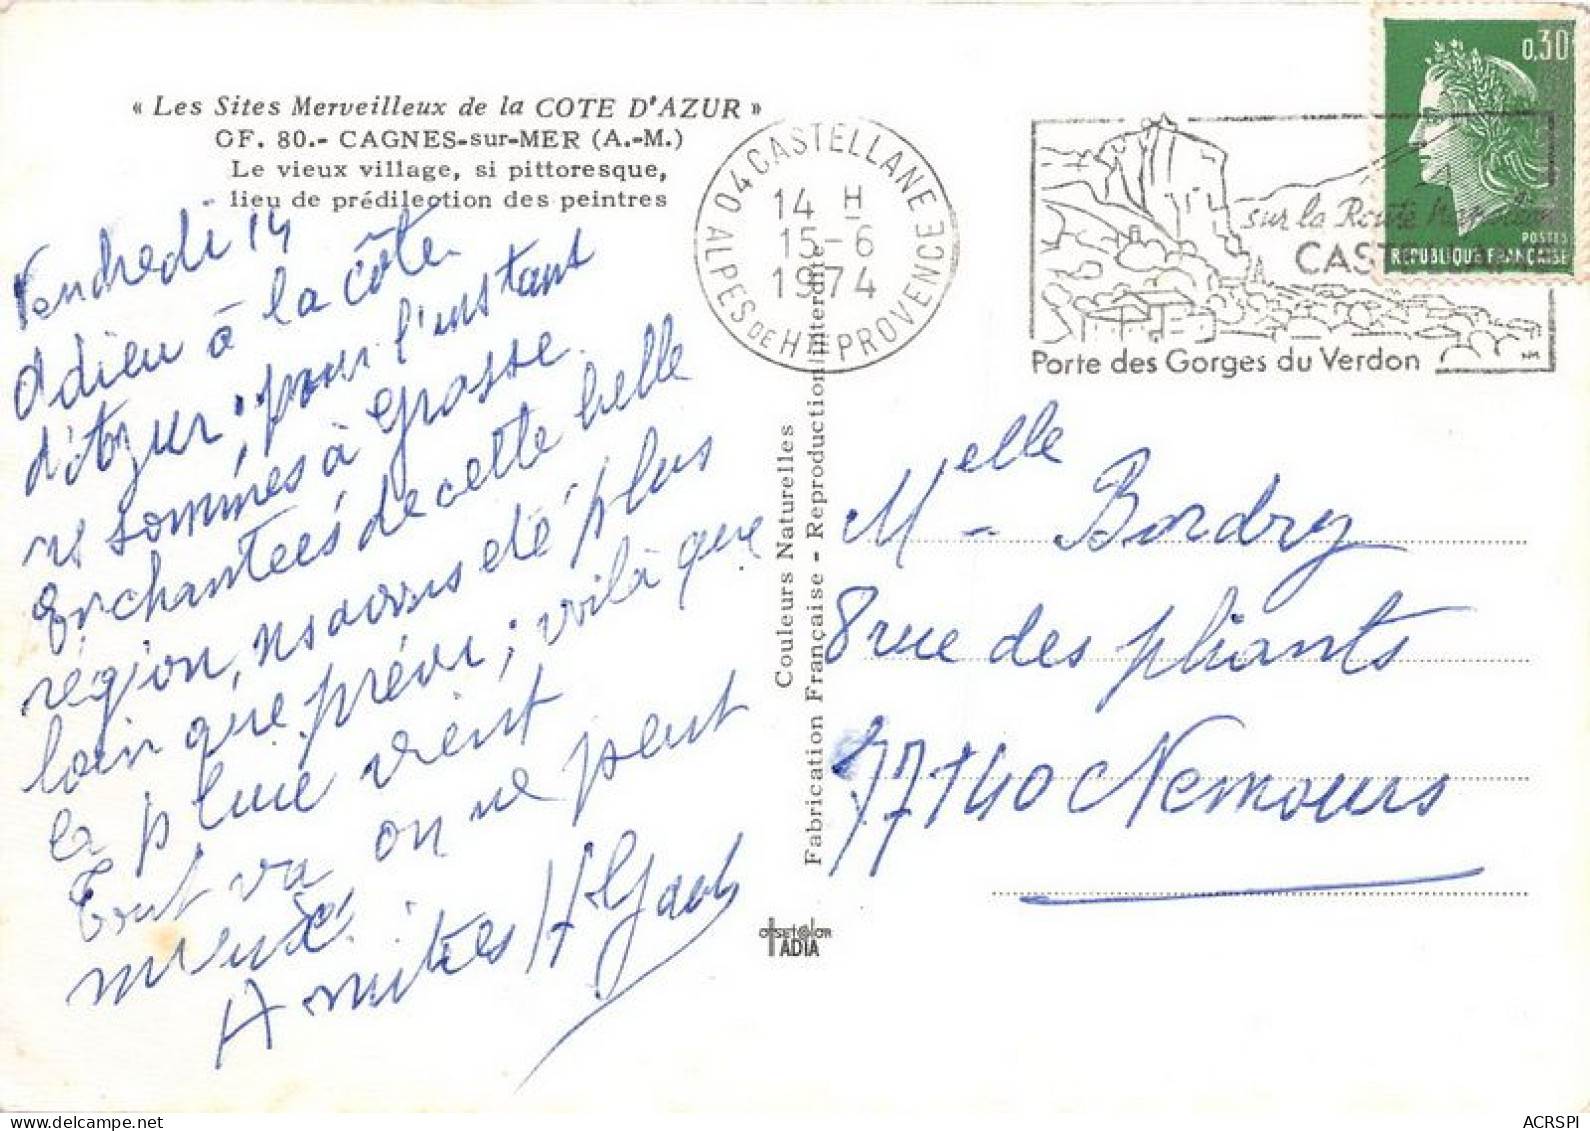 « Les Sites Merveilleux de la COTE D'AZUR »
CF. 80.- CAGNES-sur-MER (A.-M.)
Le vieux village, si pittoresque,
lieu de prédilection des peintres
Vendredi 14
Adieu à la côte
d'Azur; pour l'instant
ns sommes à Grasse.
Enchantées de cette belle
région, ns avons été plus
loin que prévu; voilà que
la pluie vient
tout va on ne peut
mieux.
Amitiés
04 CASTELLANE
14 H
15-6
1974
ALPES DE HTE PROVENCE
sur la Route Napoléon
CASTELLANE
Porte des Gorges du Verdon
0,30
POSTES
REPUBLIQUE FRANÇAISE
Couleurs Naturelles
Fabrication Française - Reproduction interdite
Melle Bordry
8 rue des pliants
77140 Nemours
OFFSET COLOR
ADIA
ACRSPI